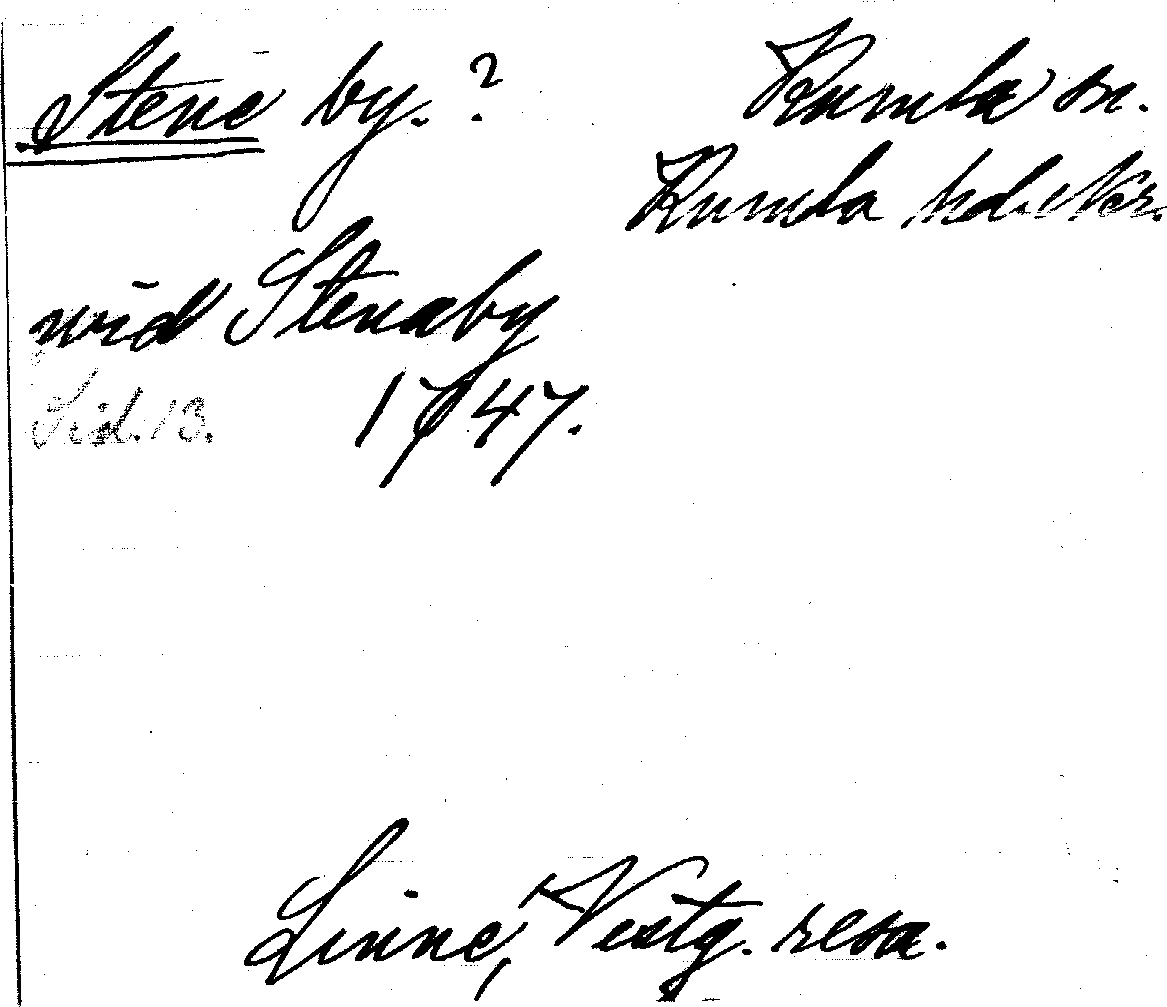 Stene by. ?
Kumla sn.
Kumla hd. Ner.
wid Stenaby
Sid. 13. 1747.
Linné, Vestg. resa.